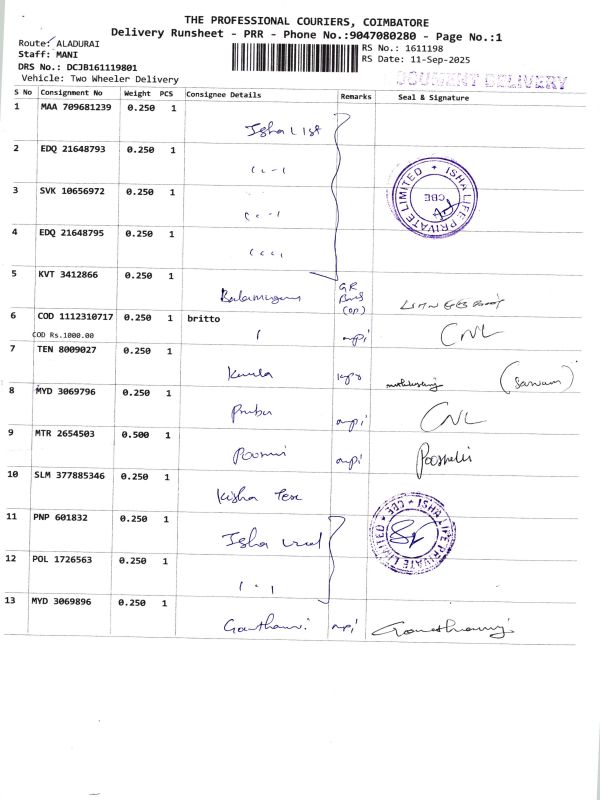 THE PROFESSIONAL COURIERS, COIMBATORE
Delivery Runsheet - PRR - Phone No.:9047080280 - Page No.:1
Route: ALADURAI
Staff: MANI
DRS No.: DCJB161119801
Vehicle: Two Wheeler Delivery
RS No.: 1611198
RS Date: 11-Sep-2025
DOCUMENT DELIVERY
S No Consignment No Weight PCS Consignee Details Remarks Seal & Signature
1 MAA 709681239 0.250 1
Isha List
2 EDQ 21648793 0.250 1
3 SVK 10656972 0.250 1
ISHA LIFE PRIVATE LIMITED
CBE
4 EDQ 21648795 0.250 1
5 KVT 3412866 0.250 1
Balamurugan GR
6 COD 1112310717 0.250 1 britto
COD Rs.1000.00 mpi CNL
7 TEN 8009027 0.250 1
Kamla
8 MYD 3069796 0.250 1
Prabu mpi CNL
9 MTR 2654503 0.500 1
mpi
10 SLM 377885346 0.250 1
11 PNP 601832 0.250 1
Isha
ISHA LIFE PRIVATE LIMITED CBE
12 POL 1726563 0.250 1
13 MYD 3069896 0.250 1
Gauthami mpi